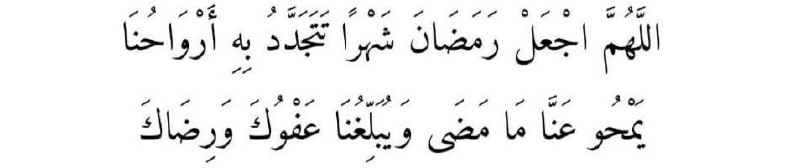 اللَّهُمَّ اجْعَلْ رَمَضَانَ شَهْرًا تَتَجَدَّدُ بِهِ أَرْوَاحُنَا
يَمْحُو عَنَّا مَا مَضَى وَيُبَلِّغُنَا عَفْوُكَ وَرِضَاكَ